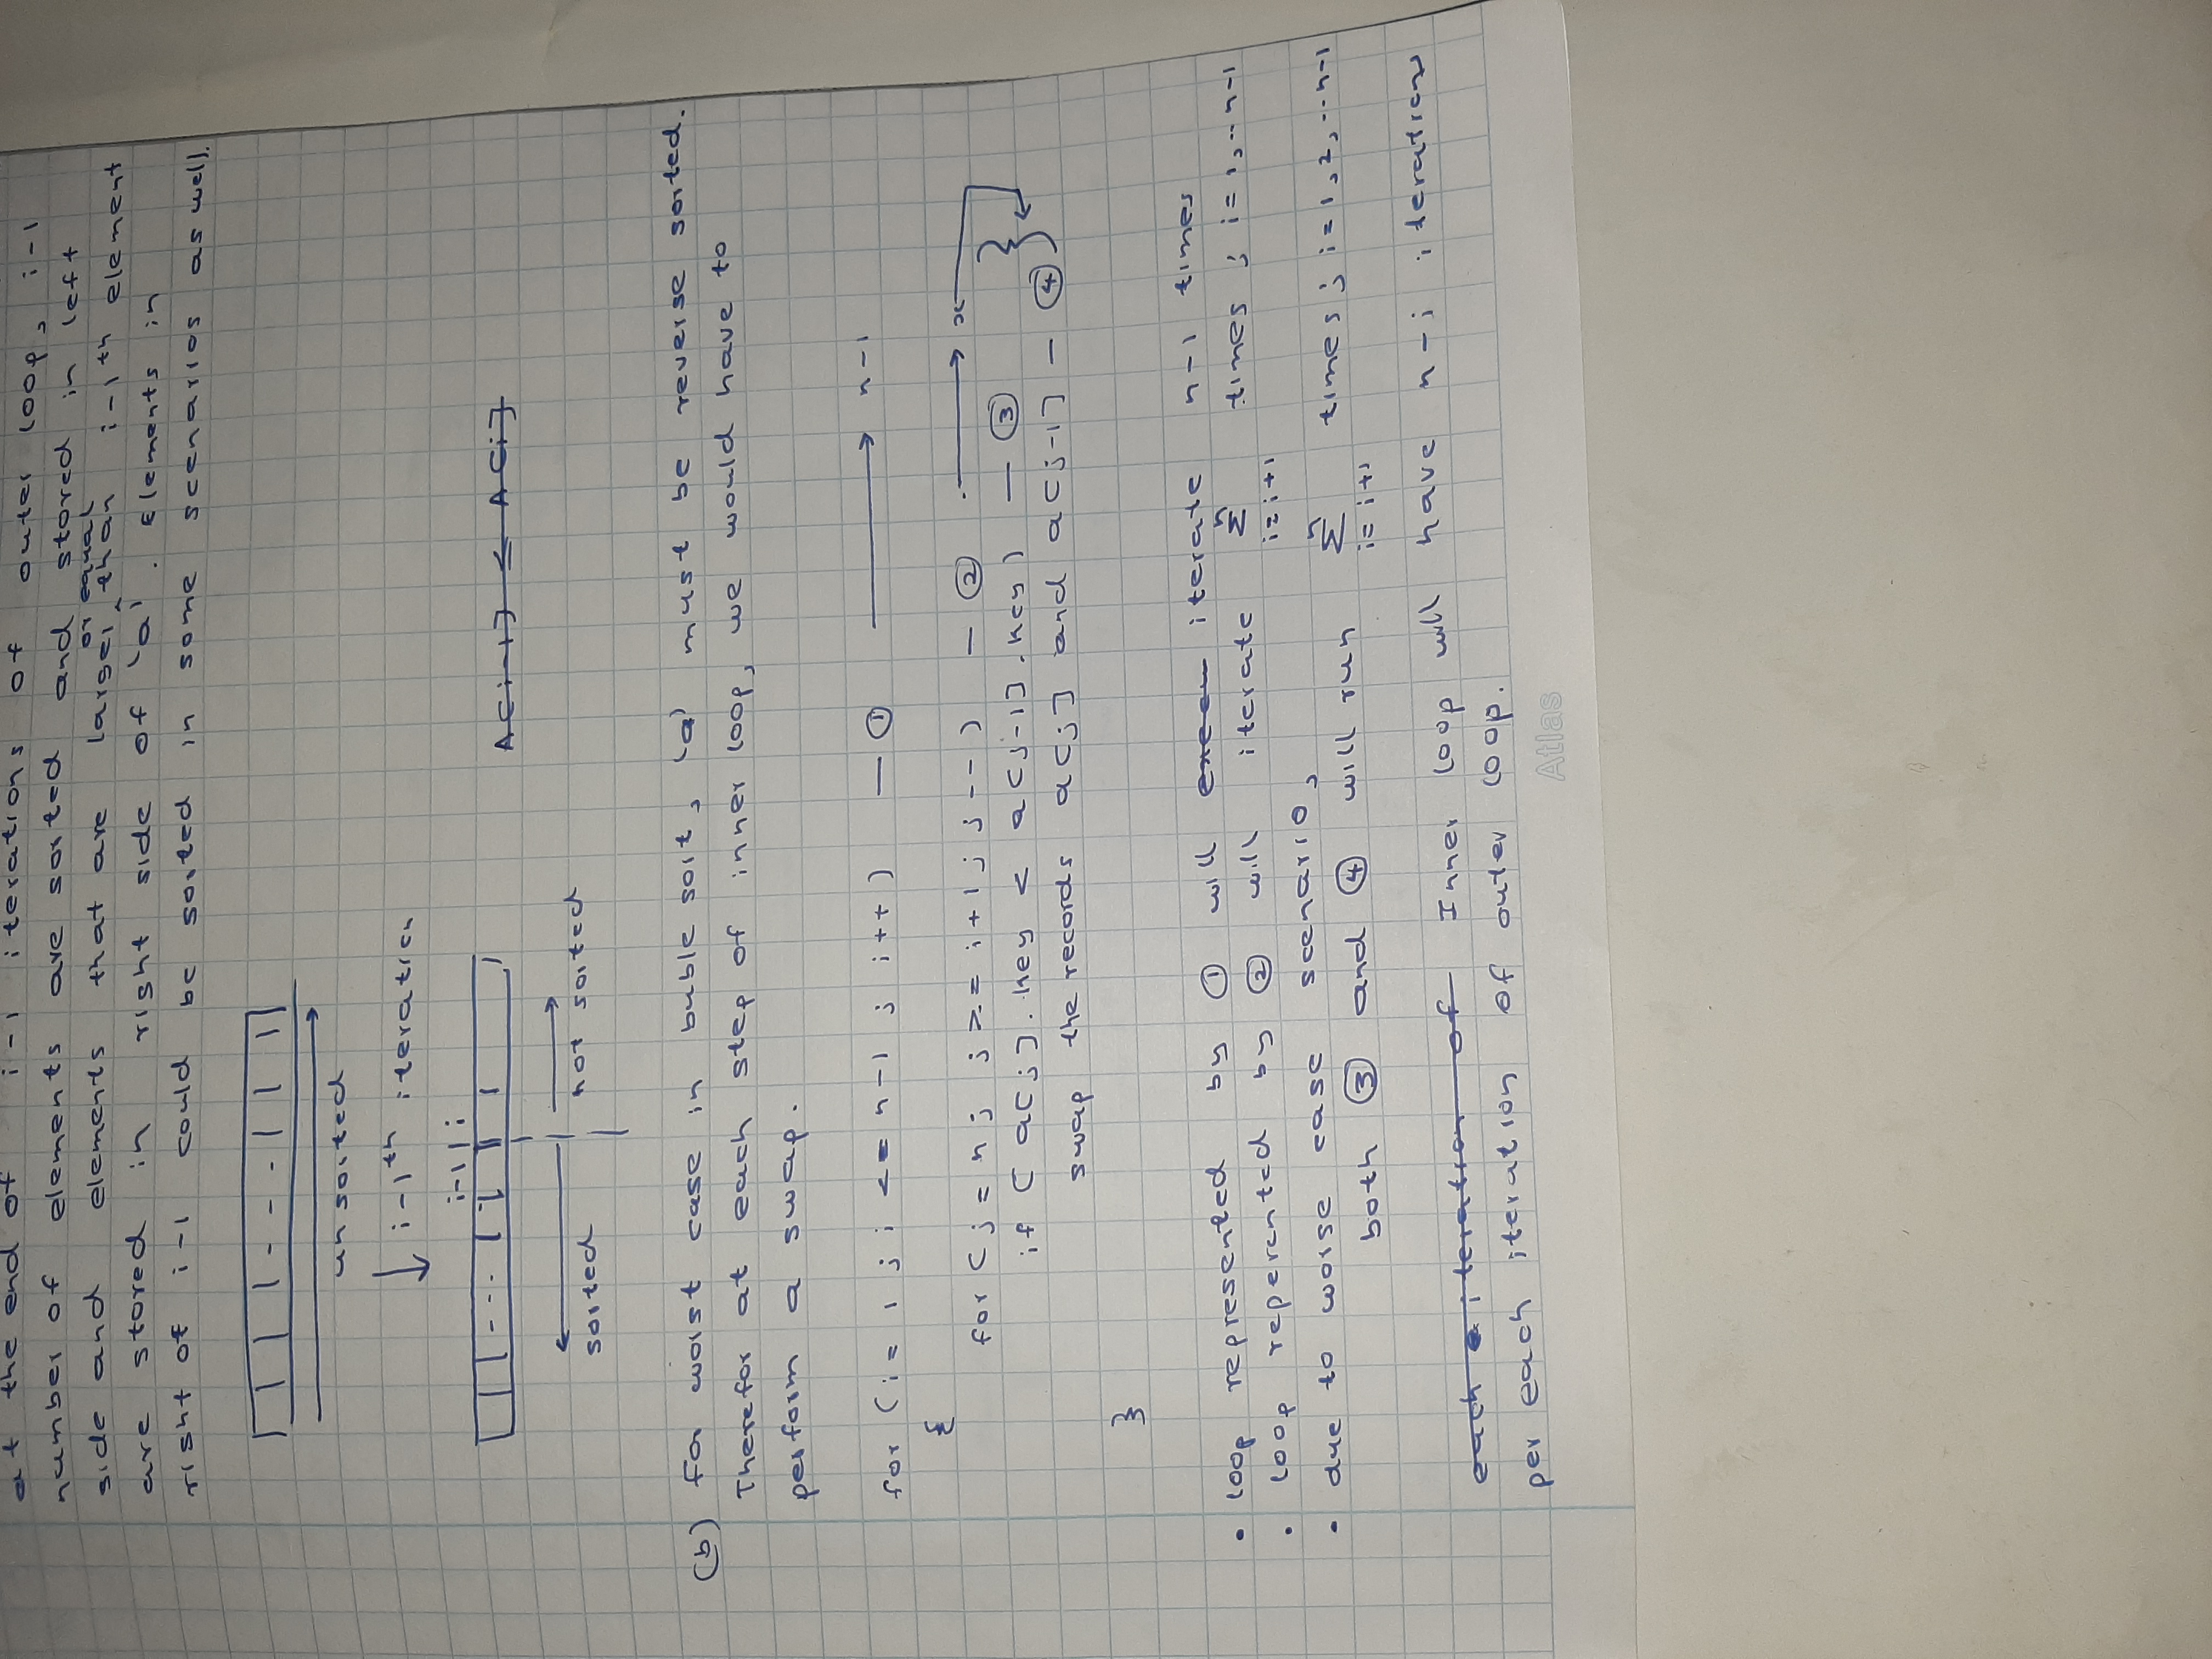 at the end of i-1 iterations of outer loop, i-1
number of elements are sorted and stored in left
or equal
side and elements that are larger than i-1th element
are stored in right side of 'a'. Elements in
right of i-1 could be sorted in some scenarios as well.
unsorted
i-1th iteration
i-1 | i
A[i-1] ≤ A[i]
sorted
not sorted
(b) for worst case in buble sort, 'a' must be reverse sorted.
Therefor at each step of inner loop, we would have to
perform a swap.
for (i = 1 ; i <= n-1 ; i++) — ① → n-1
{
for (j = n ; j >= i+1 ; j--) — ② → x
if ( a[j].key < a[j-1].key) — ③
swap the records a[j] and a[j-1] — ④
}
• loop represented by ① will iterate n-1 times
• loop reperented by ② will iterate n Σ i=i+1 times ; i=1,..n-1
• due to worse case scenario,
both ③ and ④ will run n Σ i=i+1 times ; i=1,2,..n-1
each iteration of Inner loop will have n-i iterations
per each iteration of outer loop.
Atlas